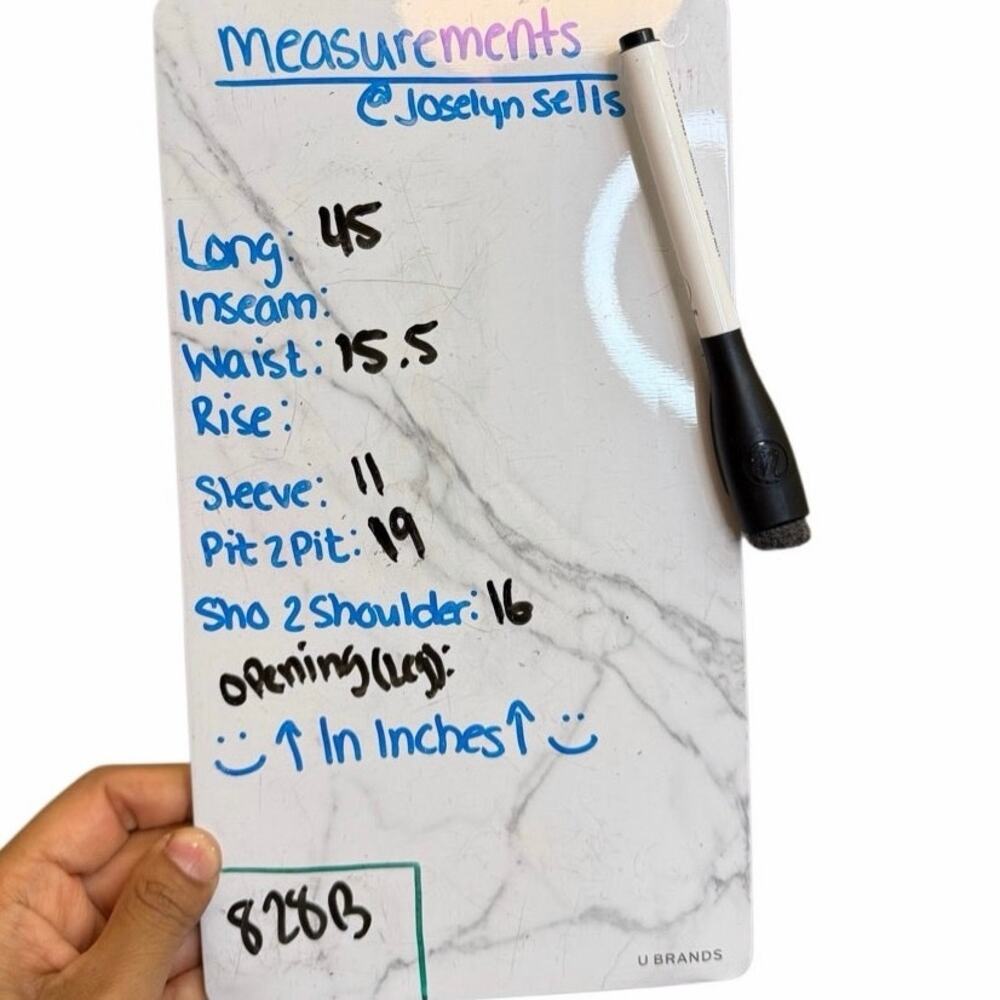 measurements
@Joselyn sells
Long: 45
Inseam:
Waist: 15.5
Rise:
Sleeve: 11
Pit 2 Pit: 19
Sho 2 Shoulder: 16
opening (Leg):
↑ In Inches ↑
828B
U BRANDS